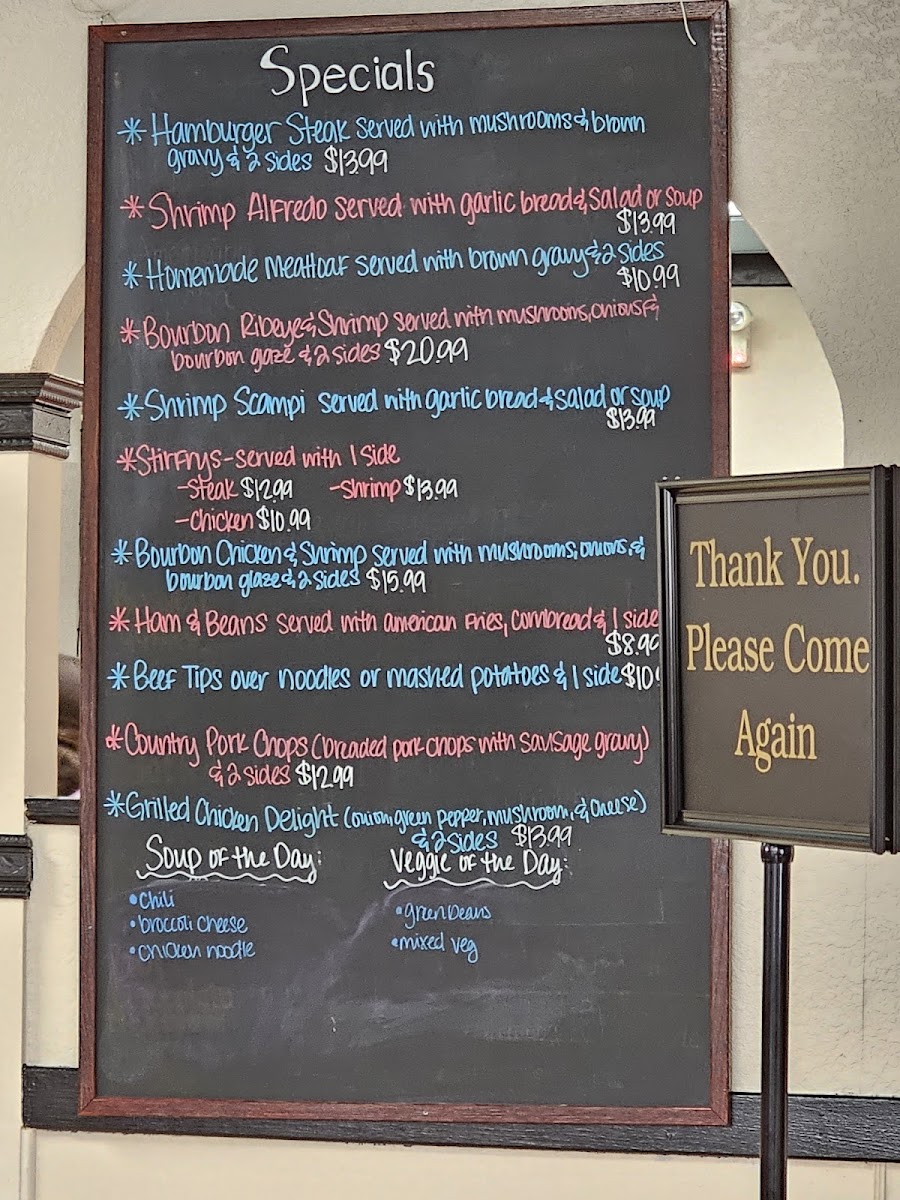 Specials
* Hamburger Steak served with mushrooms & brown
gravy & 2 sides $13.99
* Shrimp Alfredo served with garlic bread & salad or soup
$13.99
* Homemade Meatloaf served with brown gravy & 2 sides
$10.99
* Bourbon Ribeye & Shrimp served with mushrooms, onions &
bourbon glaze & 2 sides $20.99
* Shrimp Scampi served with garlic bread & salad or soup
$13.99
* Stirfrys - served with 1 side
- Steak $12.99 - Shrimp $13.99
- Chicken $10.99
* Bourbon Chicken & Shrimp served with mushrooms, onions, &
bourbon glaze & 2 sides $15.99
* Ham & Beans served with american fries, cornbread & 1 side
$8.99
* Beef Tips over noodles or mashed potatoes & 1 side $10
* Country Pork Chops (breaded pork chops with sausage gravy)
& 2 sides $12.99
* Grilled Chicken Delight (onion, green pepper, mushroom, & cheese)
& 2 sides $13.99
Soup of the Day:
• chili
• broccoli cheese
• chicken noodle
Veggie of the Day:
• green beans
• mixed veg
Thank You.
Please Come
Again